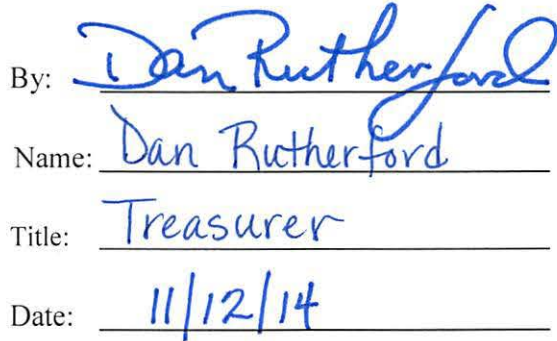 By: Dan Rutherford
Name: Dan Rutherford
Title: Treasurer
Date: 11/12/14